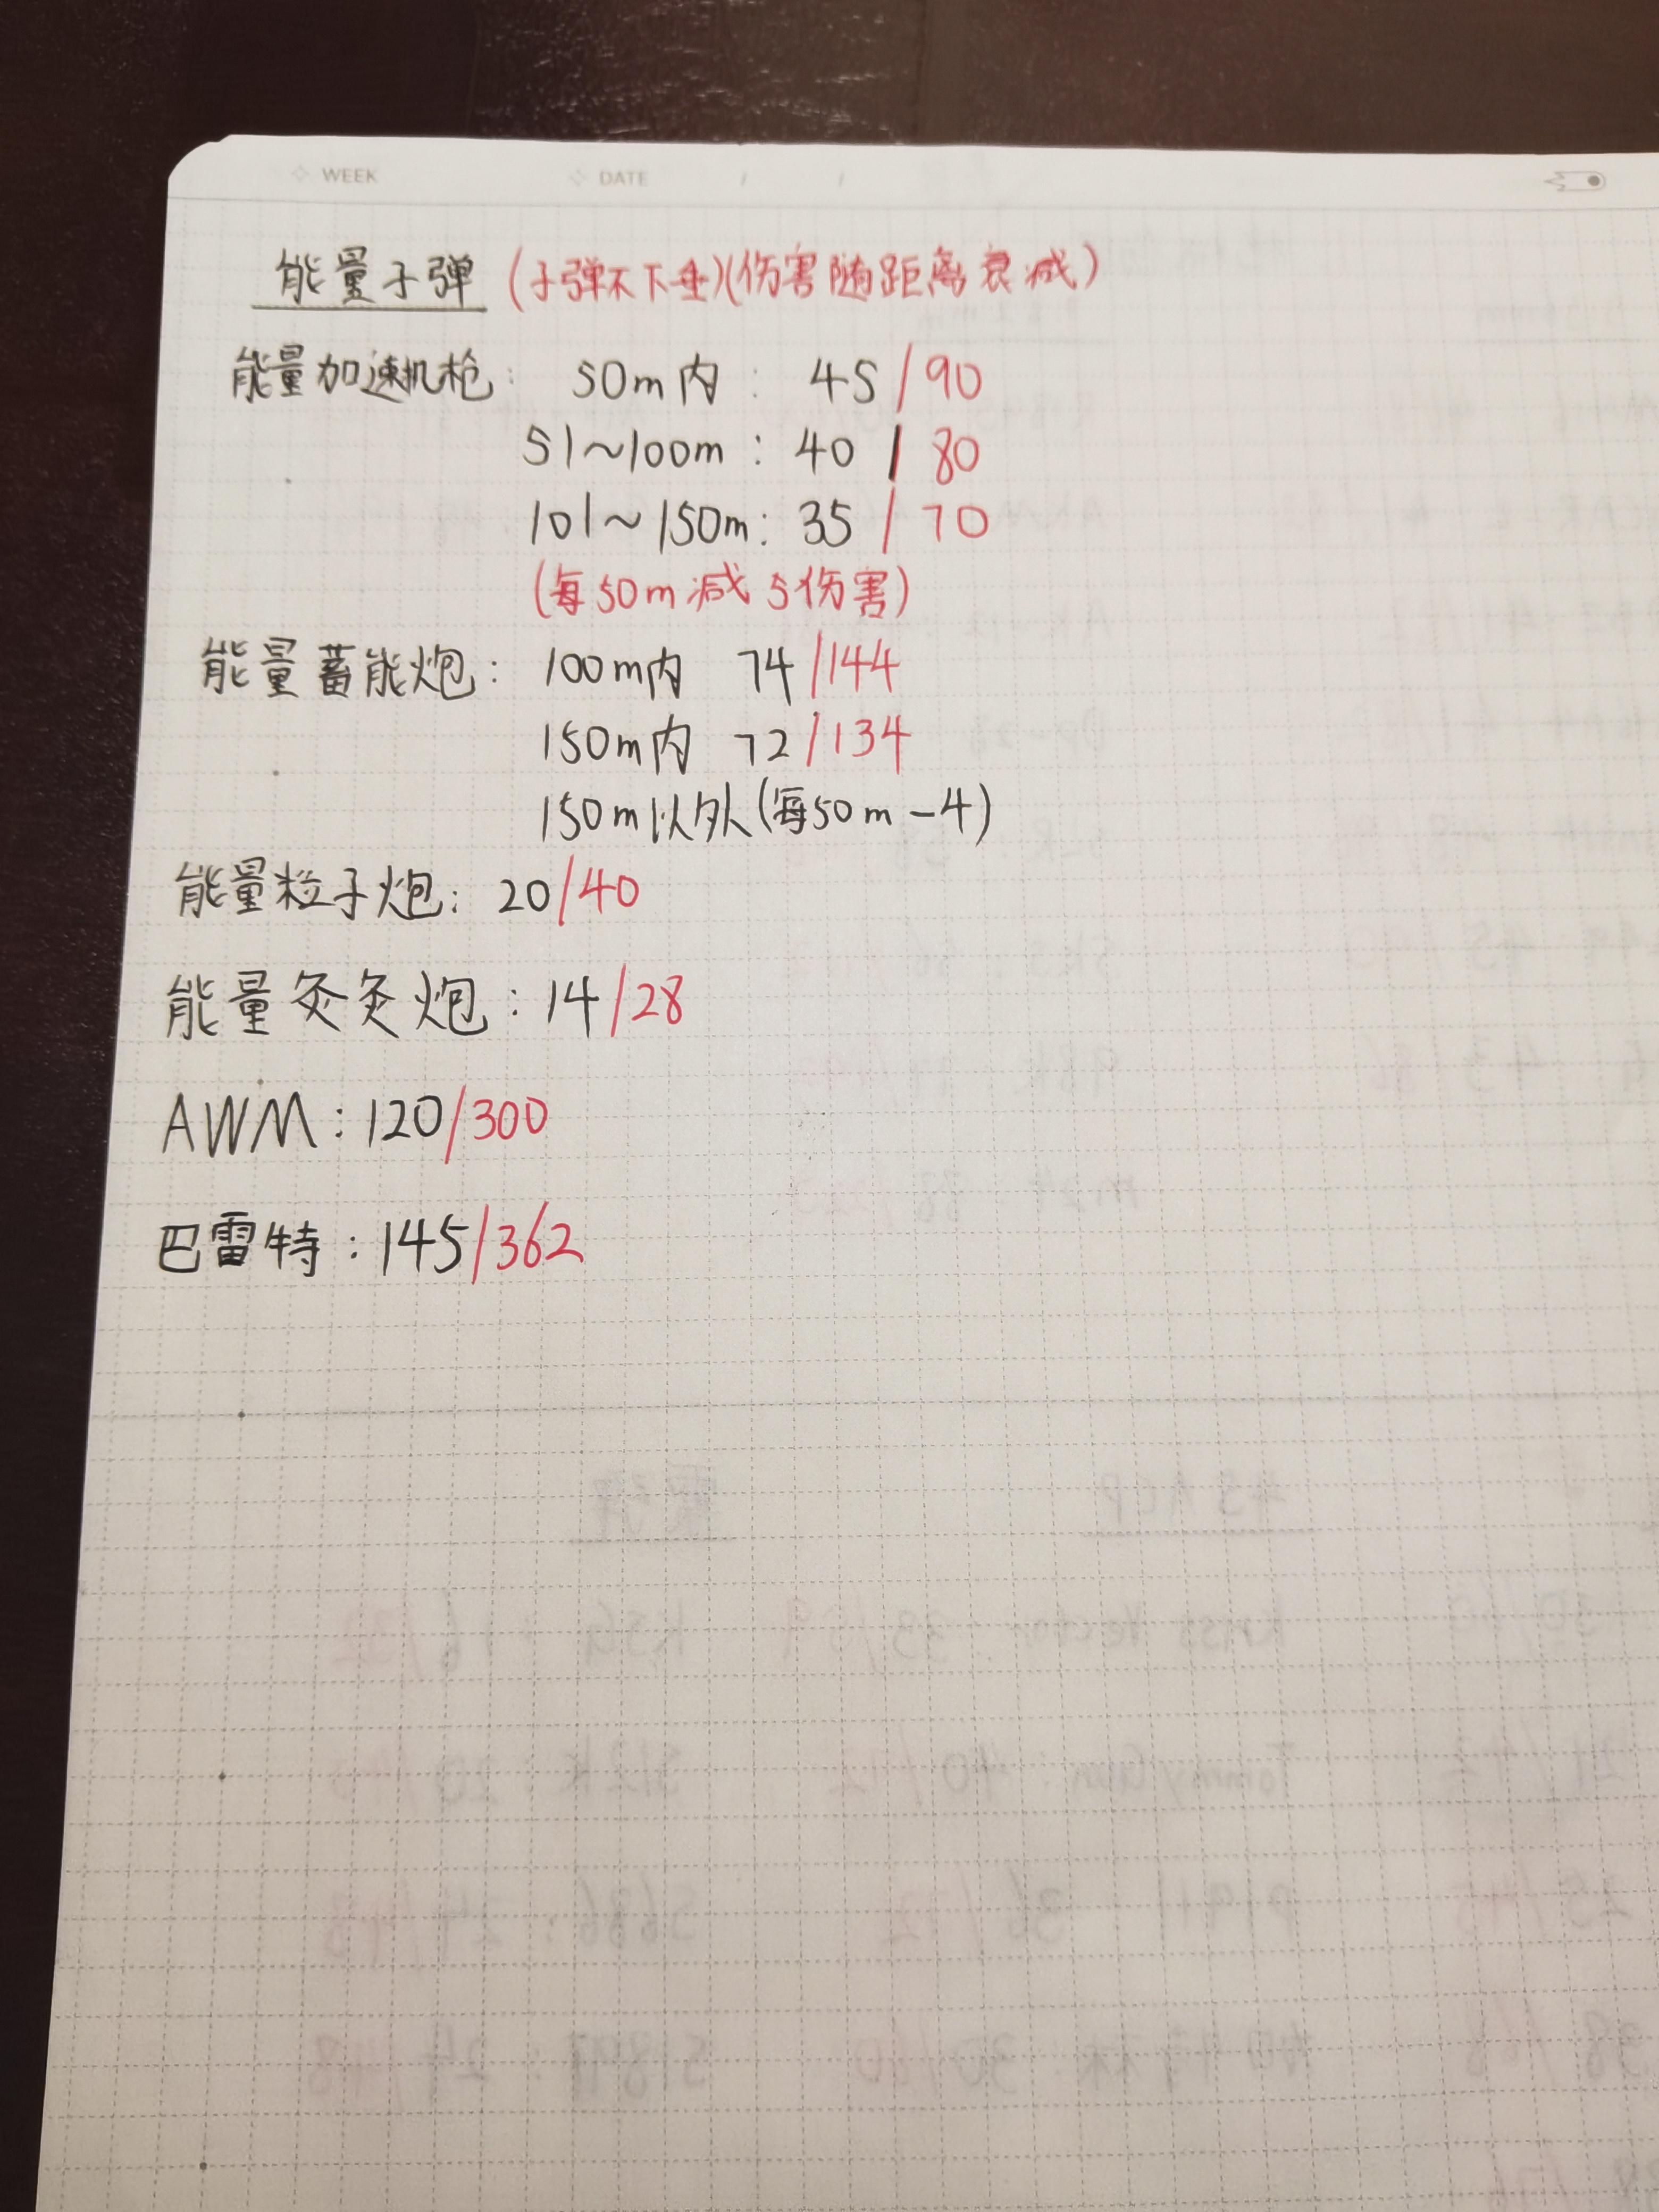 WEEK DATE / /
能量子弹 (子弹不下垂)(伤害随距离衰减)
能量加速机枪: 50m内: 45/90
51~100m: 40/80
101~150m: 35/70
(每50m减5伤害)
能量蓄能炮: 100m内 74/144
150m内 72/134
150m以外(每50m-4)
能量粒子炮: 20/40
能量灸灸炮: 14/28
AWM: 120/300
巴雷特: 145/362